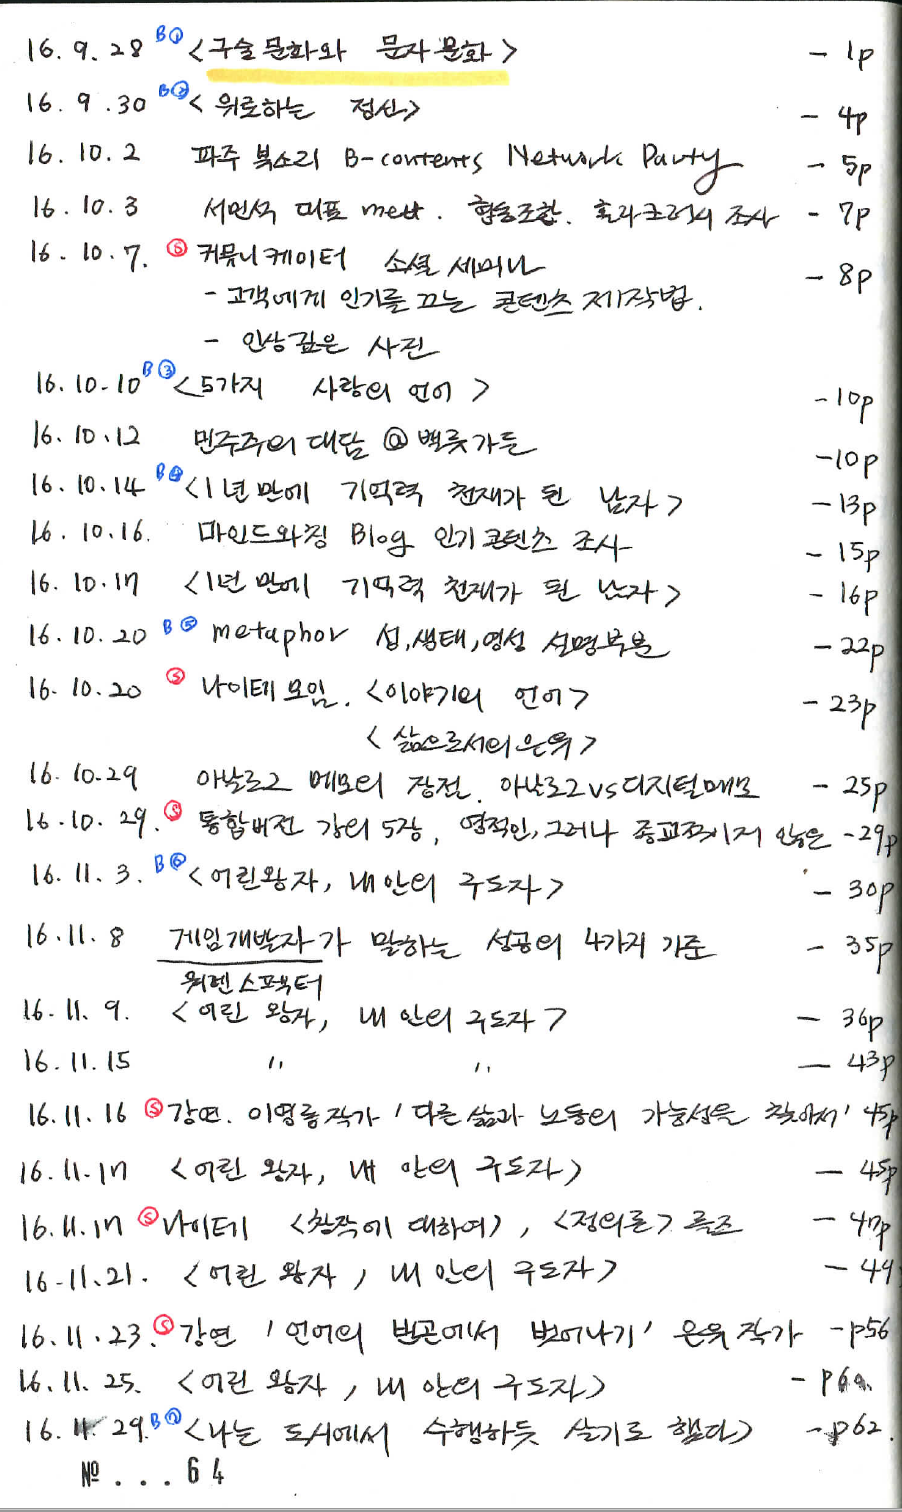 16. 9. 28 B① <구술문화와 문자문화> - 1p
16. 9. 30 B② < 위로하는 정신> - 4p
16. 10. 2 파주 북소리 B-contents Network Party - 5p
16. 10. 3 서민석 대표 meet. 협동조합. 홀라크러시 조사 - 7p
16. 10. 7. Ⓢ 커뮤니케이터 소셜 세미나 - 8p
- 고객에게 인기를 끄는 콘텐츠 제작법.
- 인상깊은 사진
16. 10-10 B③ <5가지 사랑의 언어 > -10p
16. 10. 12 민주주의 대담 @ 벙커가든 -10p
16. 10. 14 B④ <1년 만에 기억력 천재가 된 남자> -13p
16. 10. 16. 마인드와칭 Blog 인기콘텐츠 조사 - 15p
16. 10. 17 <1년 만에 기억력 천재가 된 남자> - 16p
16. 10. 20 B⑤ metaphor 섬,생태,영성 설명부분 - 22p
16. 10. 20 Ⓢ 나이테모임. <이야기의 언어> - 23p
< 삶으로서의 은유 >
16. 10.29 아날로그 메모의 장점. 아날로그vs디지털메모 - 25p
16.10. 29. Ⓢ 통합비전 강의 5장, 영적인, 그러나 종교적이지 않은 -29p
16. 11. 3. B⑥ <어린왕자, 내 안의 구도자> - 30p
16.11. 8 게임개발자가 말하는 성공의 4가지 기준 - 35p
워렌스펙터
16. 11. 9. <어린 왕자, 내 안의 구도자> - 36p
16. 11. 15 " " - 43p
16. 11. 16 Ⓢ강연. 이영롱작가 '다른 삶과 노동의 가능성을 찾아서' 45p
16. 11. 17 <어린 왕자, 내 안의 구도자> - 45p
16. 11. 17 Ⓢ나이테 <창작에 대하여>, <정의론> 롤즈 - 47p
16-11.21. <어린 왕자, 내 안의 구도자> - 49
16. 11. 23. Ⓢ강연 '언어의 빈곤에서 벗어나기' 은유작가 -p56
16. 11. 25. <어린 왕자, 내 안의 구도자> - p60.
16. 11. 29. B⑦ <나는 도시에서 수행하듯 살기로 했다> -p62.
№ . . . 64